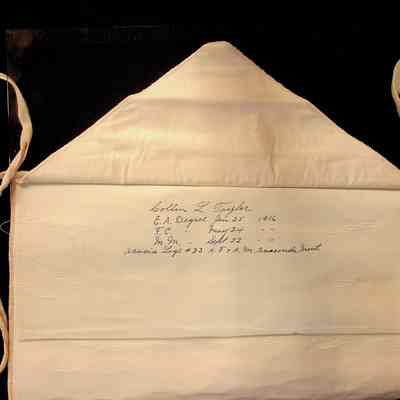 Collin L Taylor
E.A. Degree Jan 25 1916
F.C. " May 24 " "
M.M. " Sept 22 " "
Acacia Loge #33 A.F.&A.M. Anaconda Mont